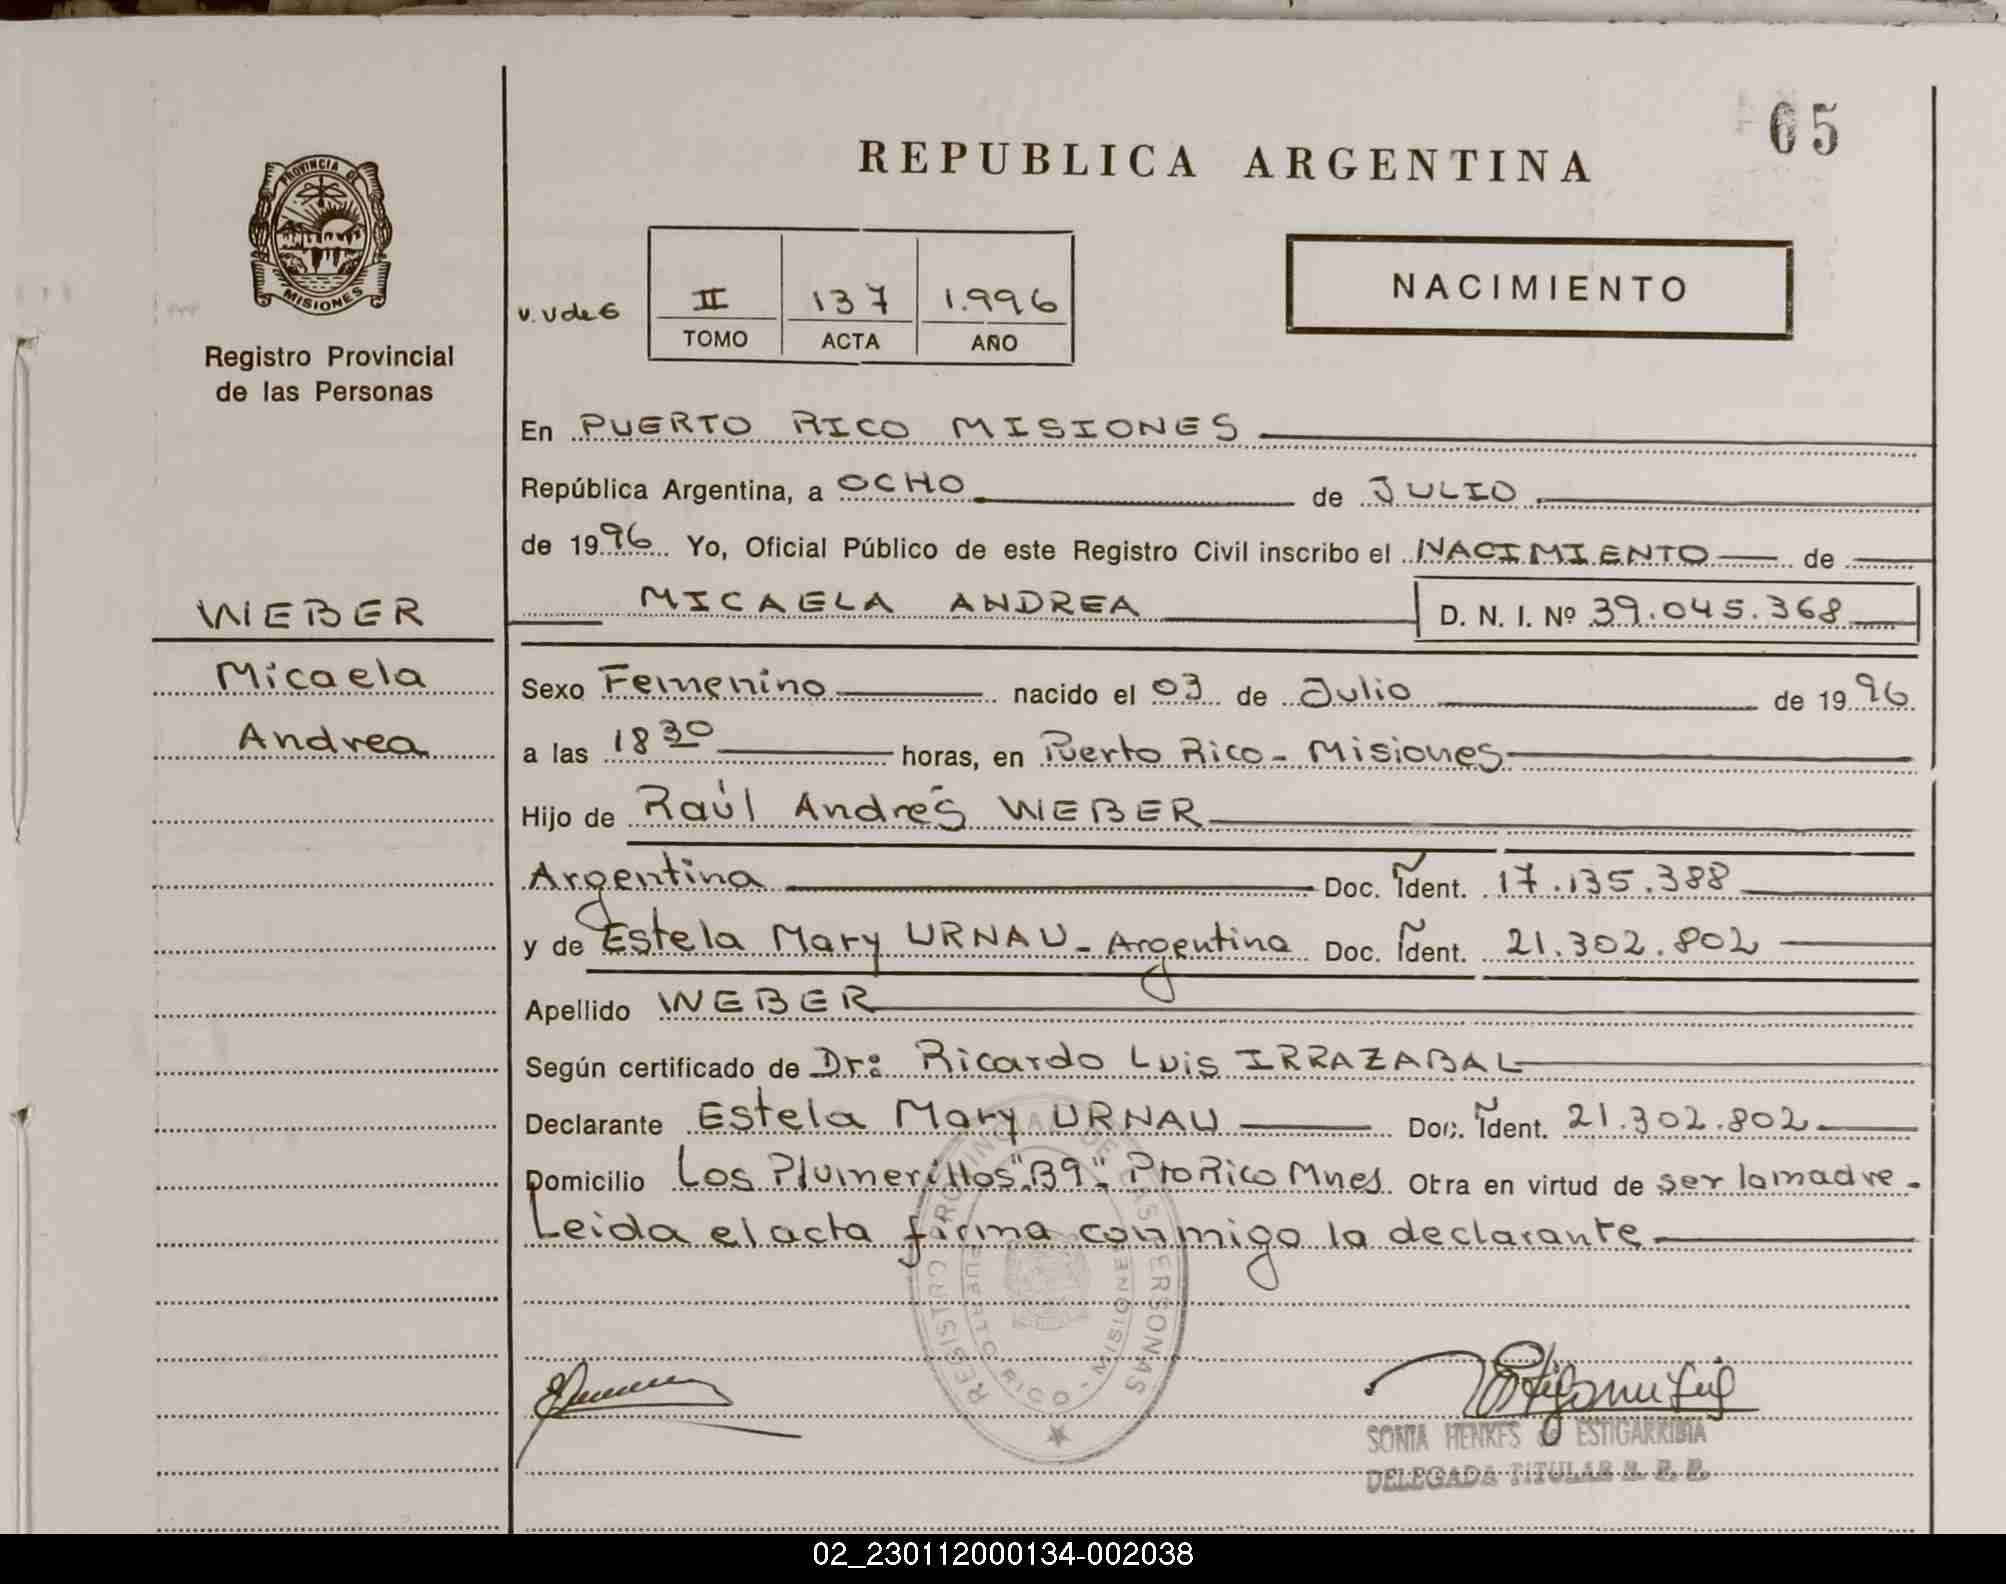 65
REPUBLICA ARGENTINA
PROVINCIA DE
MISIONES
Registro Provincial
de las Personas
NACIMIENTO
v. v de 6
II 137 1.996
TOMO ACTA AÑO
En PUERTO RICO MISIONES
República Argentina, a OCHO de JULIO
de 1996 Yo, Oficial Público de este Registro Civil inscribo el NACIMIENTO de
WEBER
MICAELA ANDREA D. N. I. Nº 39.045.368
Micaela
Sexo Femenino nacido el 03 de Julio de 1996
Andrea
a las 18 30 horas, en Puerto Rico - Misiones
Hijo de Raúl Andrés WEBER
Argentina Doc. Ident. 17.135.388
y de Estela Mary URNAU - Argentina Doc. Ident. 21.302.802
Apellido WEBER
Según certificado de Dr: Ricardo Luis IRRAZABAL
Declarante Estela Mary URNAU Doc. Ident. 21.302.802
Domicilio Los Plumerillos "B9" Pto Rico Mnes Obra en virtud de ser la madre.
Leida el acta firma conmigo la declarante
REGISTRO PROVINCIAL DE LAS PERSONAS
PUERTO RICO - MISIONES
SONIA HENKES de ESTIGARRIBIA
DELEGADA TITULAR R. P. P.
02_230112000134-002038